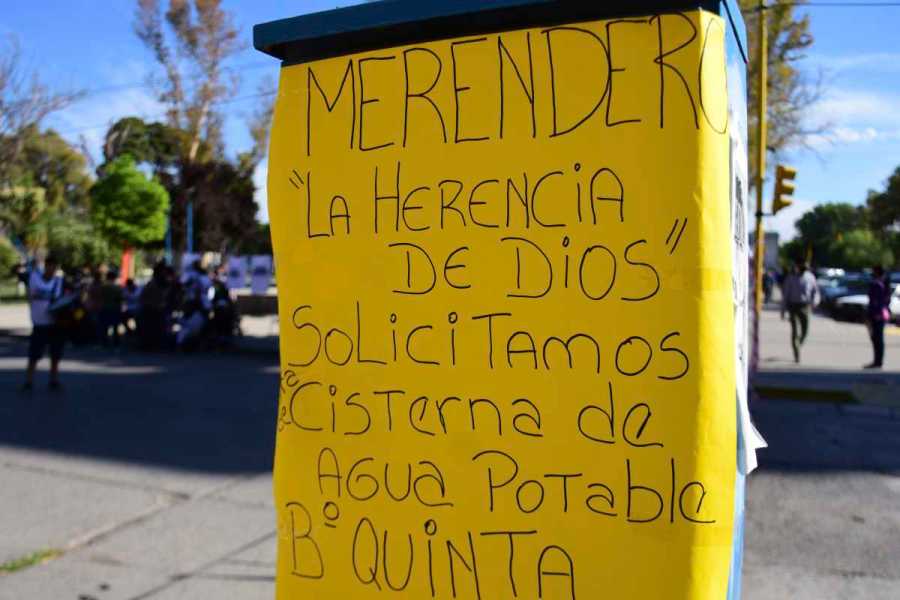 MERENDERO
"LA HERENCIA
DE DIOS"
SOLICITAMOS
CISTERNA de
AGUA POTABLE
Bº QUINTA